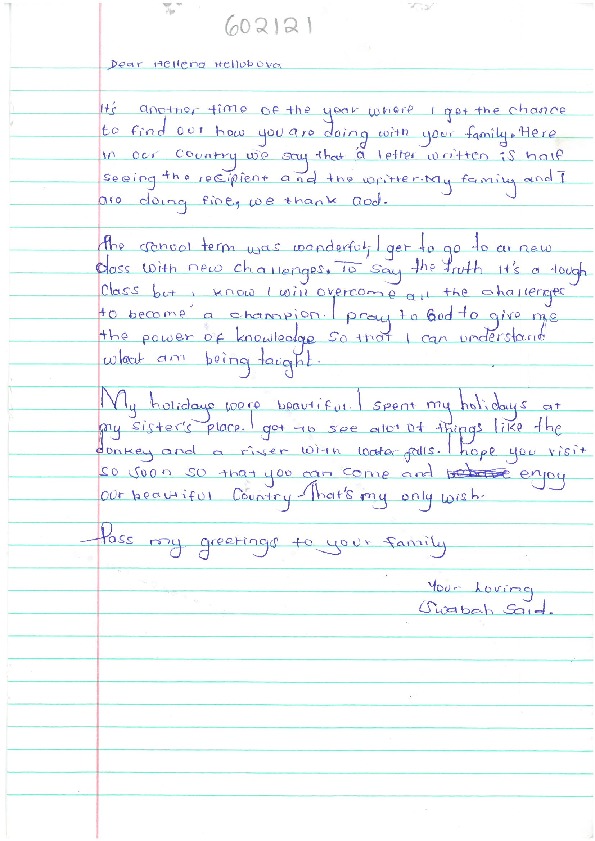 602121
Dear Hellena Hellubova
It's another time of the year where I got the chance
to find out how you are doing with your family. Here
in our country we say that a letter written is half
seeing the recipient and the writter. My family and I
are doing fine, we thank God.
The school term was wonderful, I get to go to a new
class with new challenges. To say the truth it's a tough
class but i know I will overcome all the challenges
to become a champion. I pray to God to give me
the power of knowledge so that I can understand
what am being taught.
My holidays were beautiful. I spent my holidays at
my sister's place. I got to see alot of things like the
donkey and a river with water falls. I hope you visit
so soon so that you can come and enjoy
our beautiful Country. That's my only wish.
Pass my greetings to your family
Your Loving
Swabah Said.